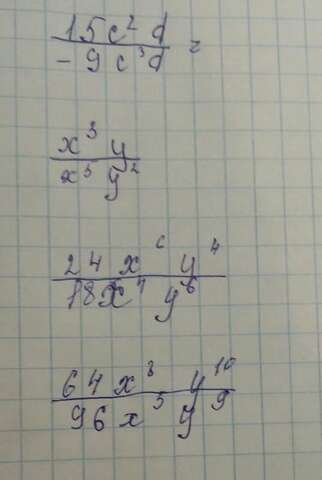 15c² d
- 9 c³d =
x³ y
x⁵ y²
24 x⁶ y⁴
18x⁴ y⁶
64x³ y¹⁰
96x⁵ y⁹